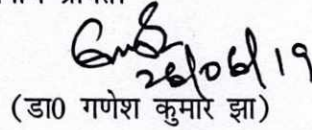 26/06/19
(डा0 गणेश कुमार झा)